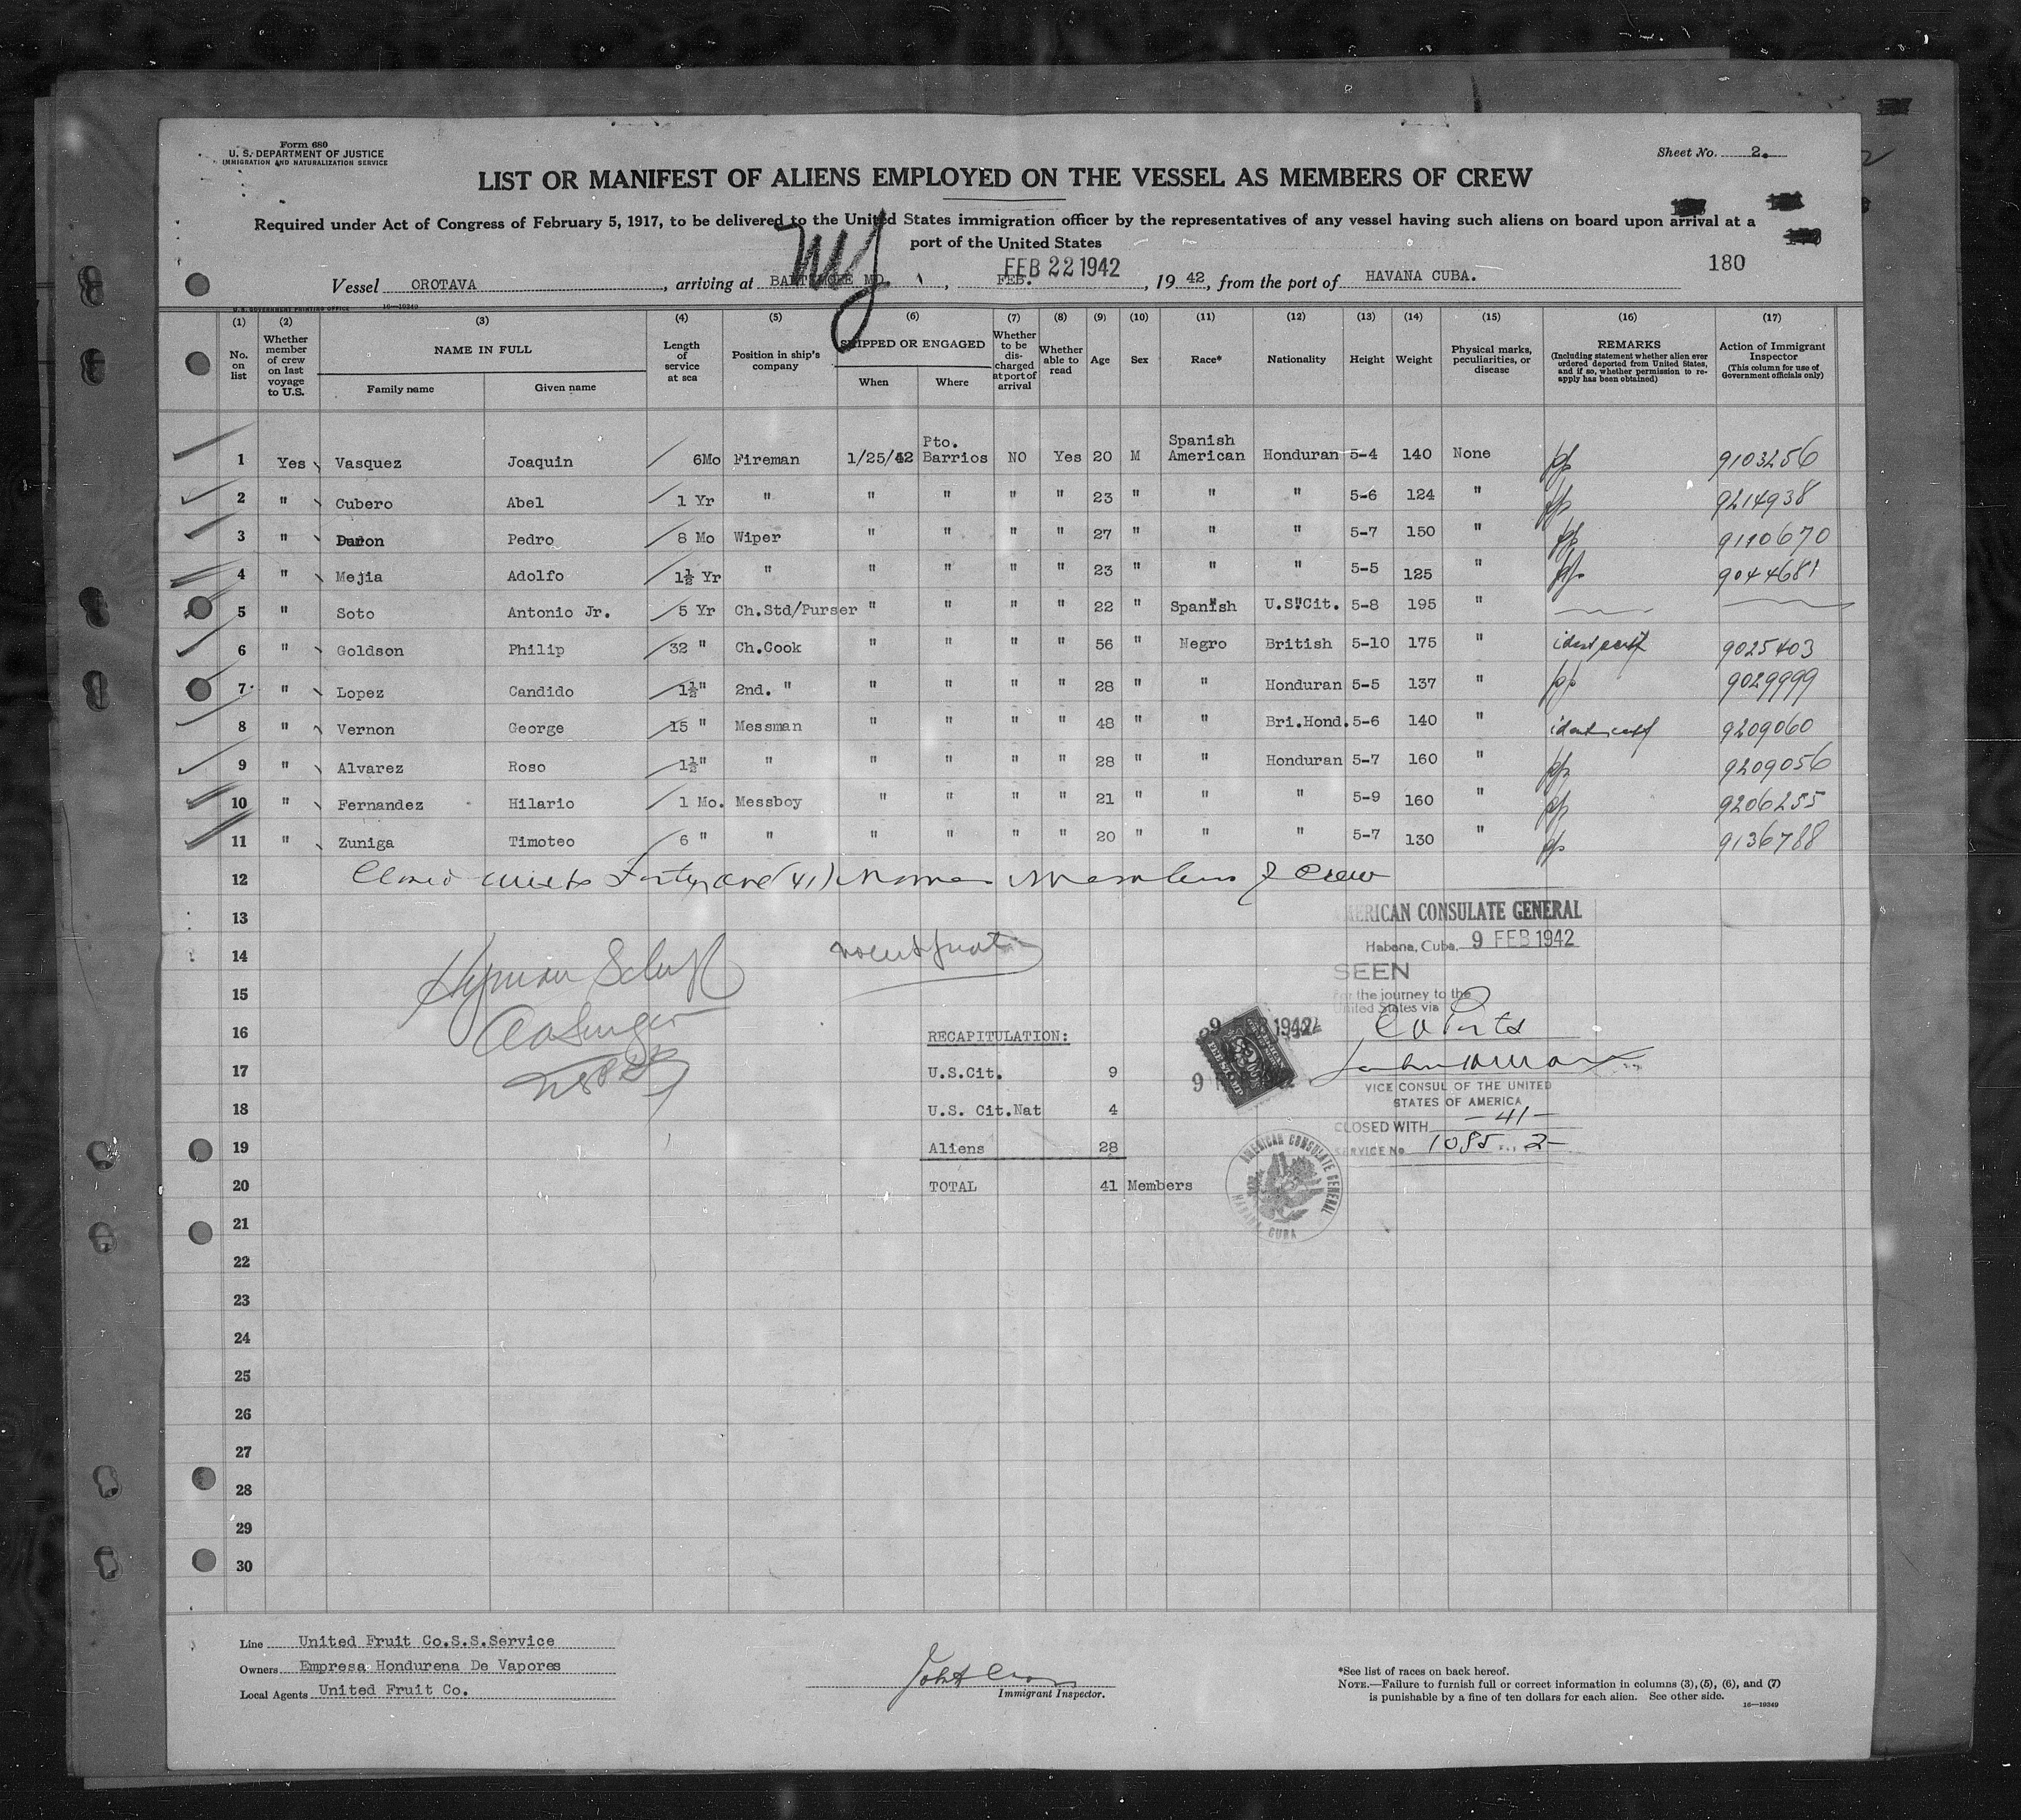 Form 680
U. S. DEPARTMENT OF JUSTICE
IMMIGRATION AND NATURALIZATION SERVICE
Sheet No. 2.
LIST OR MANIFEST OF ALIENS EMPLOYED ON THE VESSEL AS MEMBERS OF CREW
Required under Act of Congress of February 5, 1917, to be delivered to the United States immigration officer by the representatives of any vessel having such aliens on board upon arrival at a
port of the United States
180
FEB 22 1942
Vessel OROTAVA, arriving at BALTIMORE MD., FEB. , 1942, from the port of HAVANA CUBA.
U. S. GOVERNMENT PRINTING OFFICE 16—19349
(1) (2) (3) (4) (5) (6) (7) (8) (9) (10) (11) (12) (13) (14) (15) (16) (17)
No. on list
Whether member of crew on last voyage to U.S.
NAME IN FULL
Family name Given name
Length of service at sea
Position in ship's company
SHIPPED OR ENGAGED
When Where
Whether to be discharged at port of arrival
Whether able to read
Age Sex Race* Nationality Height Weight
Physical marks, peculiarities, or disease
REMARKS
(Including statement whether alien ever ordered deported from United States, and if so, whether permission to re-apply has been obtained)
Action of Immigrant Inspector
(This column for use of Government officials only)
1 Yes Vasquez Joaquin 6Mo Fireman 1/25/42 Pto. Barrios NO Yes 20 M Spanish American Honduran 5-4 140 None pp 9103256
2 " Cubero Abel 1 Yr " " " " " 23 " " " 5-6 124 " pp 9214938
3 " Duron Pedro 8 Mo Wiper " " " " 27 " " " 5-7 150 " pp 9110670
4 " Mejia Adolfo 1½ Yr " " " " " 23 " " " 5-5 125 " pp 9044681
5 " Soto Antonio Jr. 5 Yr Ch.Std/Purser " " " " 22 " Spanish U.S.Cit. 5-8 195 "
6 " Goldson Philip 32 " Ch.Cook " " " " 56 " Negro British 5-10 175 " ident certf 9025403
7 " Lopez Candido 1½" 2nd. " " " " " 28 " " Honduran 5-5 137 " pp 9029999
8 " Vernon George 15 " Messman " " " " 48 " " Bri.Hond. 5-6 140 " ident certf 9209060
9 " Alvarez Roso 1½" " " " " " 28 " " Honduran 5-7 160 " pp 9209056
10 " Fernandez Hilario 1 Mo. Messboy " " " " 21 " " " 5-9 160 " pp 9206255
11 " Zuniga Timoteo 6 " " " " " " 20 " " " 5-7 130 " pp 9136788
12 Closed with Forty one (41) Names Members of Crew
13
14
15
16
17
18
19
20
21
22
23
24
25
26
27
28
29
30
AMERICAN CONSULATE GENERAL
Habana, Cuba, 9 FEB 1942
SEEN
For the journey to the
United States via
VICE CONSUL OF THE UNITED
STATES OF AMERICA
CLOSED WITH —41—
SERVICE No 1085 ... 2—
9 FEB 1942
AMERICAN CONSULATE GENERAL
HABANA, CUBA
RECAPITULATION:
U.S.Cit. 9
U.S. Cit.Nat 4
Aliens 28
TOTAL 41 Members
Line United Fruit Co.S.S.Service
Owners Empresa Hondurena De Vapores
Local Agents United Fruit Co.
Immigrant Inspector.
*See list of races on back hereof.
NOTE.—Failure to furnish full or correct information in columns (3), (5), (6), and (7)
is punishable by a fine of ten dollars for each alien. See other side.
16—19349